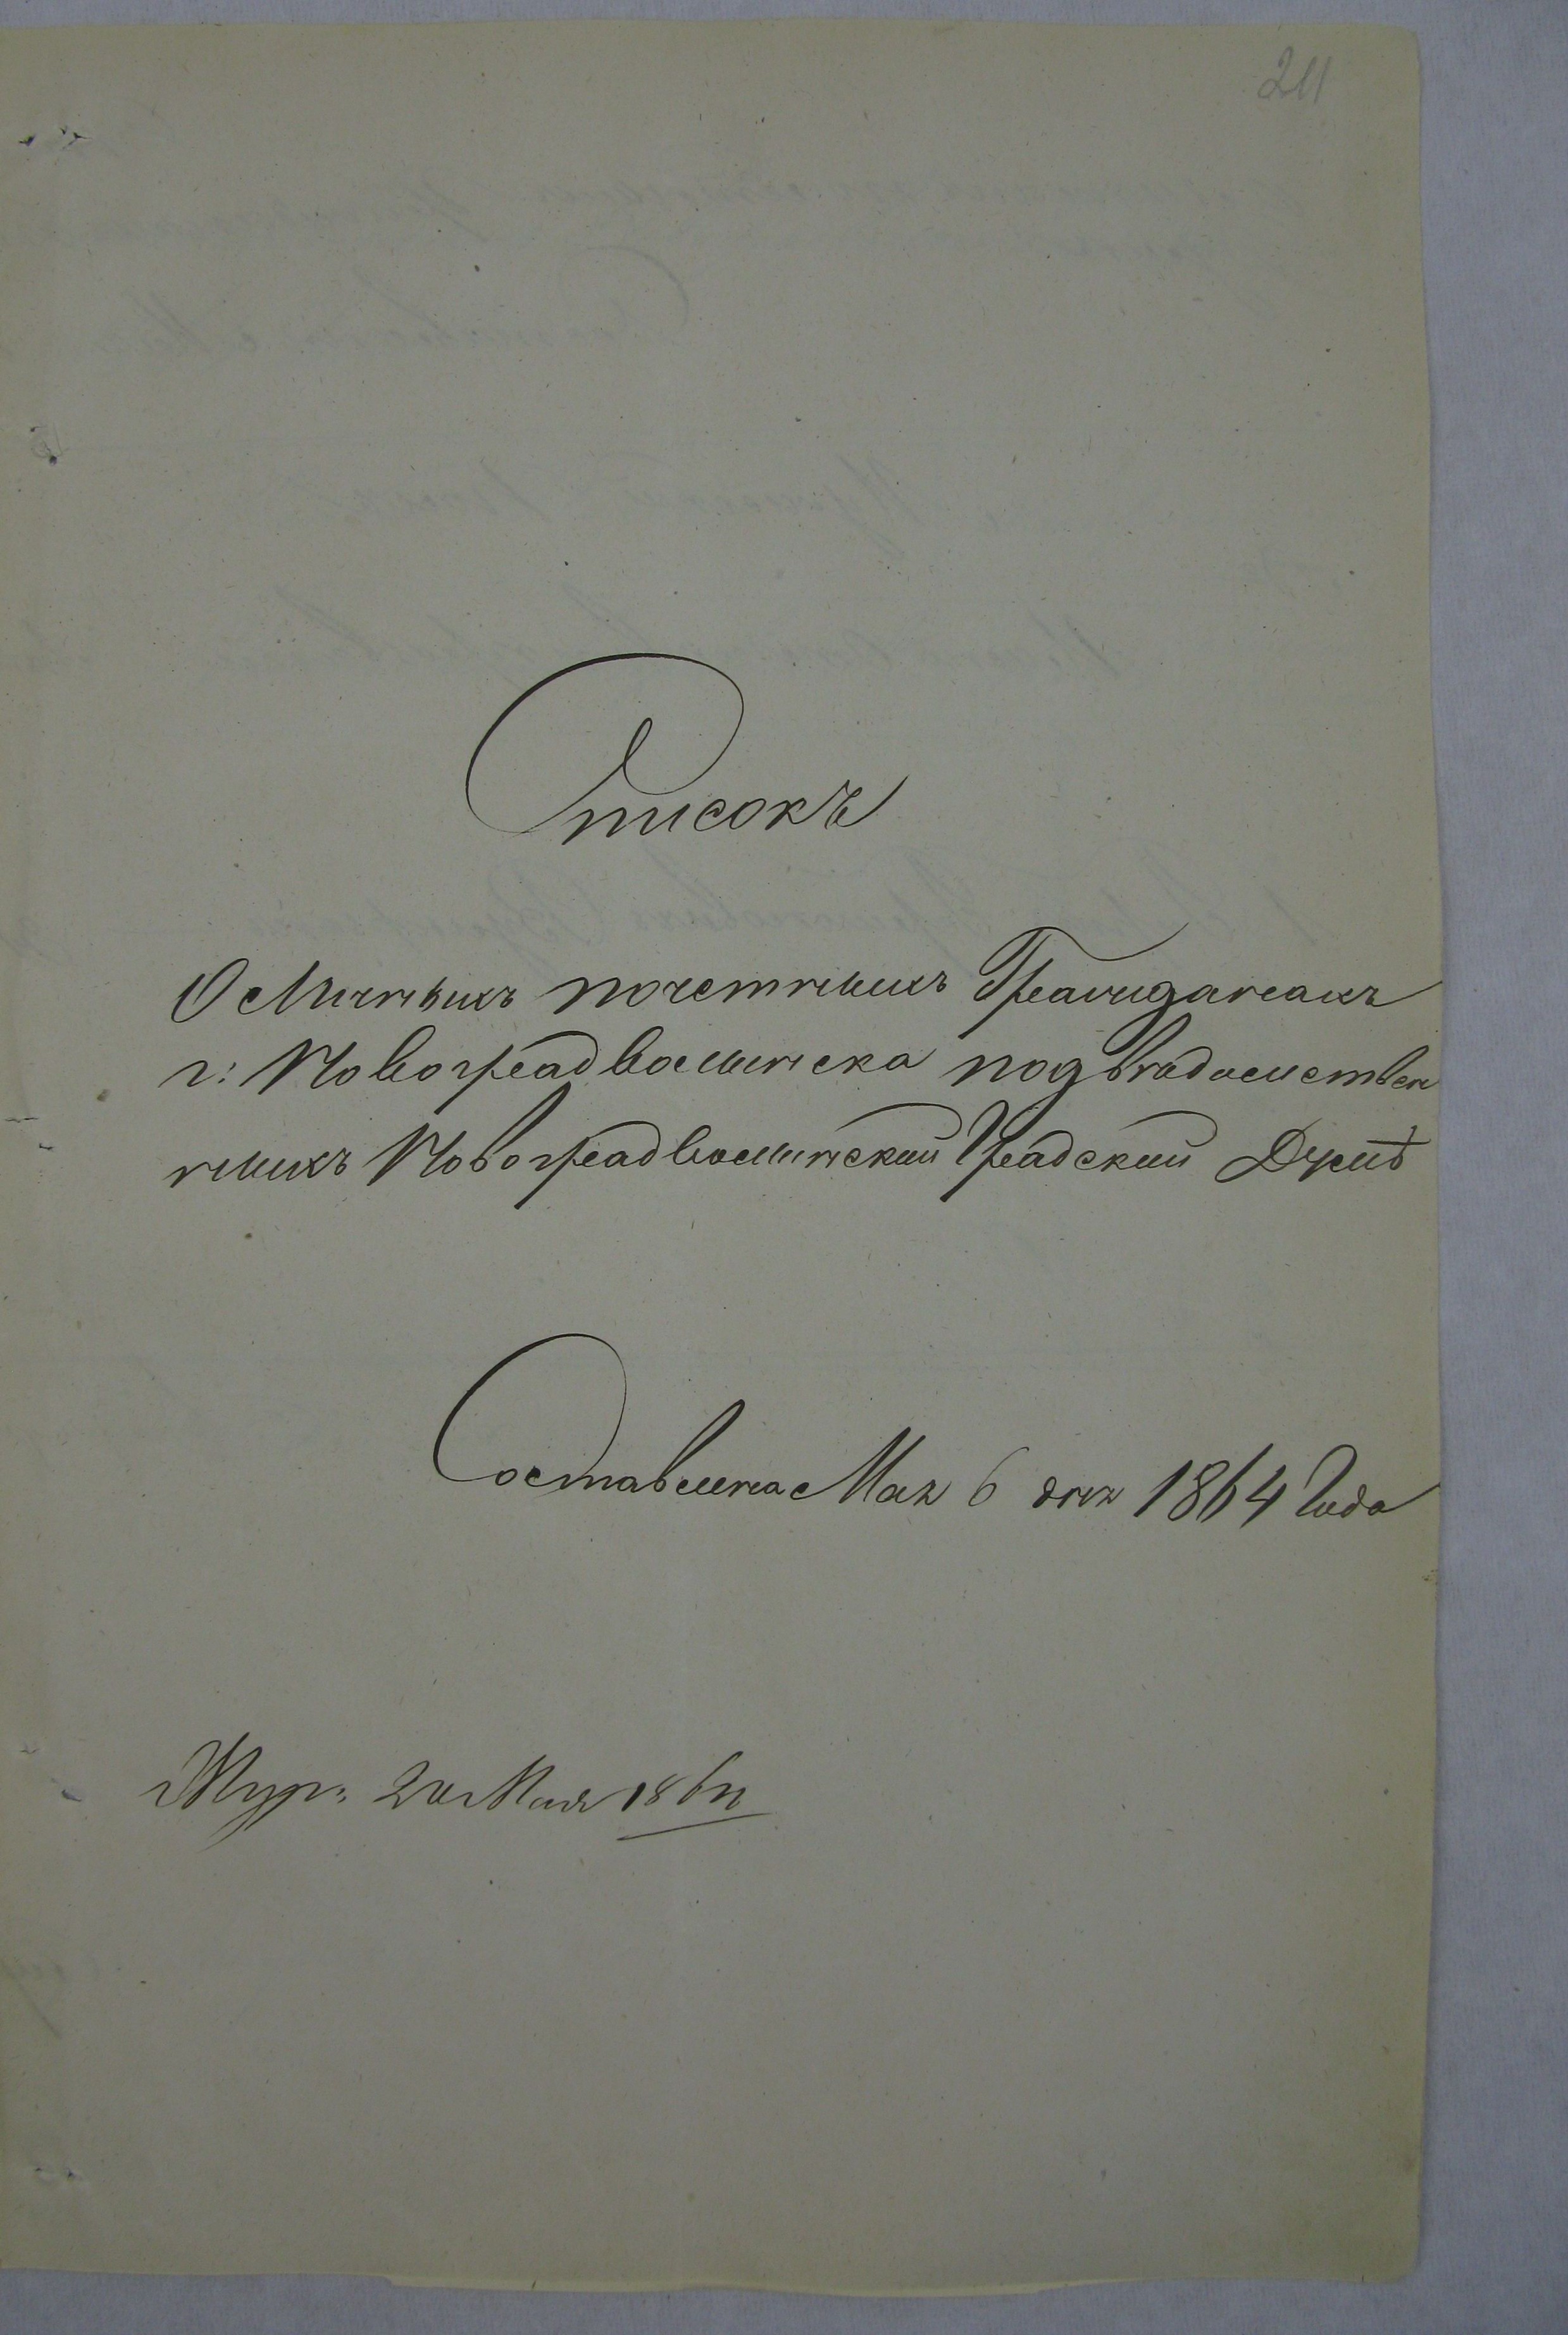 211
Списокъ
О Личныхъ почетныхъ Гражданахъ
г: Новоградволынска подвѣдомствен
ныхъ Новоградволынской Градской Думѣ
Составлена Мая 6 дня 1864 Года
Жур: 20 Мая 1864